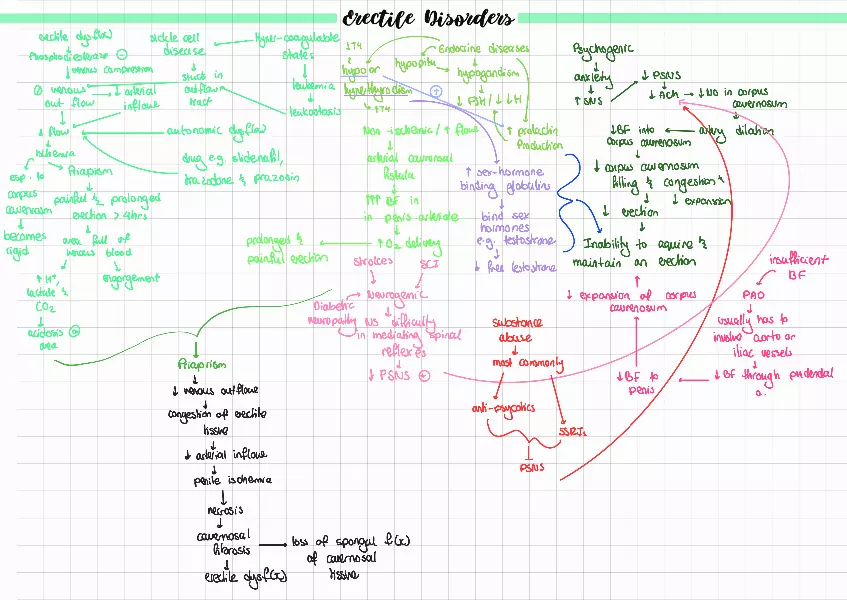 Erectile Disorders
erectile dysf(x)
Phosphodiesterase
venous compression
venous
out flow
↓ arterial
inflow
sickle cell
disease
stuck in
outflow
tract
hyper-coagulable
states
leukemia
leukostasis
↓ flow
autonomic dysf(x)
ischemia
drug e.g. sildenafil,
trazadone & prazosin
esp. to
corpus
cavernosm
becomes
rigid
Priapism
painful & prolonged
erection > 4hrs
area full of
venous blood
engorgement
↑ H⁺,
lactate &
CO2
acidosis
area
↓T4
hypo or
hyperthyrodism
↑T4
Endocrine diseases
hypopitu
hypogonadism
↓ FSH/↓LH
↑ prolactin
Production
Non ischemic/↑ flow
arterial cavernosal
fistula
↑↑↑ BF in
in penis arteriole
↑ O2 delivery
prolonged &
painful erection
↑ sex-hormone
binding globulins
bind sex
hormones
e.g. testostrone
↓ free testostrone
Psychogenic
anxiety
↑ SNS
↓ PSNS
↓ Ach → ↓ NO in corpus
cavernosum
artery dilation
↓BF into
corpus cavernosum
↓ corpus cavernosum
filling & congestion &
↓ expansion
↓ erection
Inability to aquire &
maintain an erection
strokes
SCI
Neurogenic
Diabetic
neuropathy
NS difficulty
in mediating spinal
reflexes
↓ PSNS
↓ expansion of corpus
cavernosum
insufficient
BF
PAD
usually has to
involve aorta or
iliac vessels
↓ BF through pudendal
a.
↓BF to
penis
substance
abuse
most commonly
anti-psycotics
SSRIs
PSNS
Priapism
↓ venous outflow
congestion of erectile
tissue
↓ arterial inflow
penile ischemia
necrosis
cavernosal
fibrosis
loss of spongal f(x)
of cavernosal
tissue
erectile dysf(x)